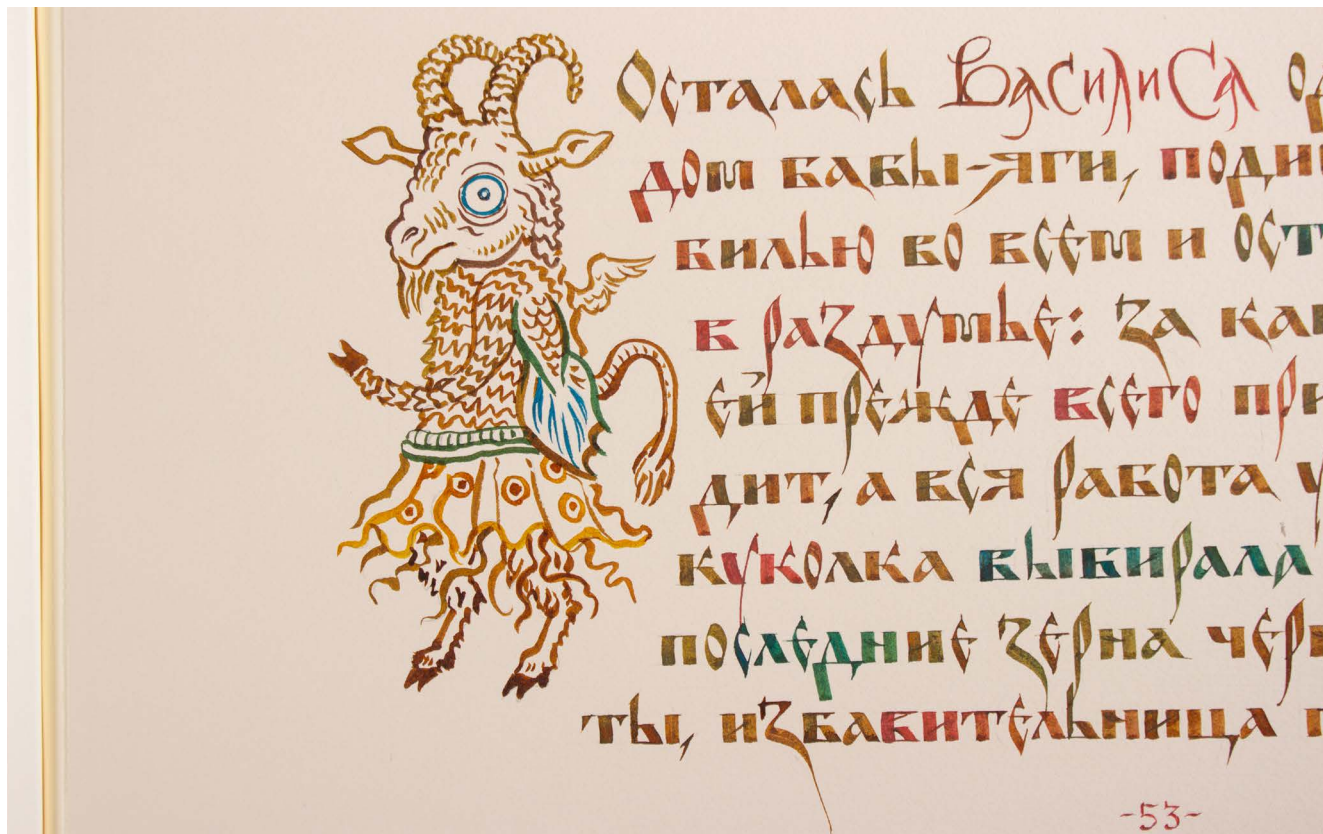 Осталась Василиса од
дом бабы-яги, подив
билью во всем и ост
в раздумье: за как
ей прежде всего при
дит, а вся работа у
куколка выбирала
последние зерна черн
ты, избавительница
-53-